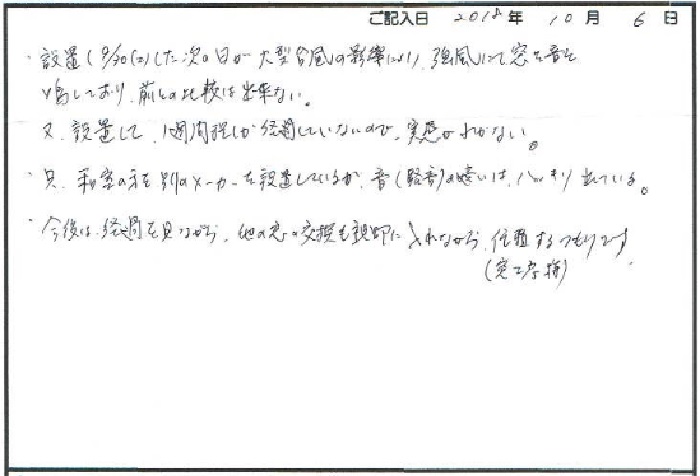 ご記入日 2018年 10月 6日
・設置(9/30(日))した次の日が大型台風の影響により、強風にて窓も音を
鳴しており、前との比較は出来ない。
又、設置して、1週間程しか経過していないので、実感がわかない。
只、和室の方を別のメーカーを設置しているが、音(騒音)の違いは、ハッキリ出ている。
・今後は、経過を見ながら、他の窓の交換も視野に入れながら、住
するつもりです